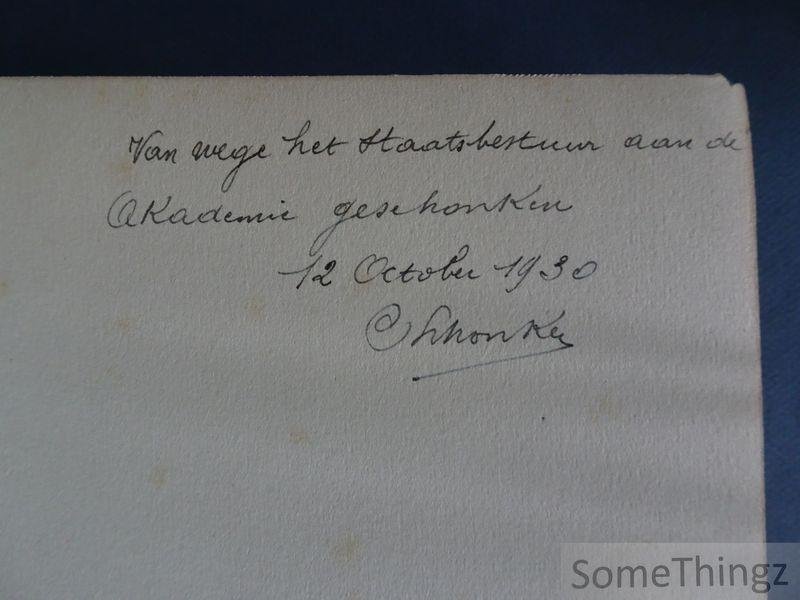 Van wege het Staatsbestuur aan de
Akademie geschonken
12 October 1930
SomeThingz